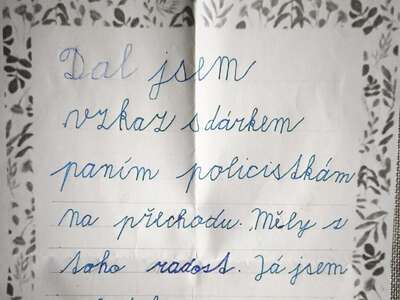 Dal jsem
vzkaz s dárkem
paním policistkám
na přechodu. Měly z
toho radost. Já jsem